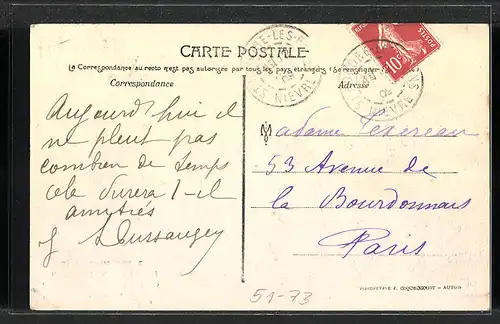 CARTE POSTALE
La Correspondance au recto n'est pas autorisée par tous les pays étrangers (Se renseigner
Correspondance
Adresse
Aujourd'hui il
ne pleut pas
combien de temps
cela durera t-il
amitiés
Madame
53 Avenue de
la Bourdonnais
Paris
NIEVRE
NIEVRE
POSTES
10c
51-73
AUTUN